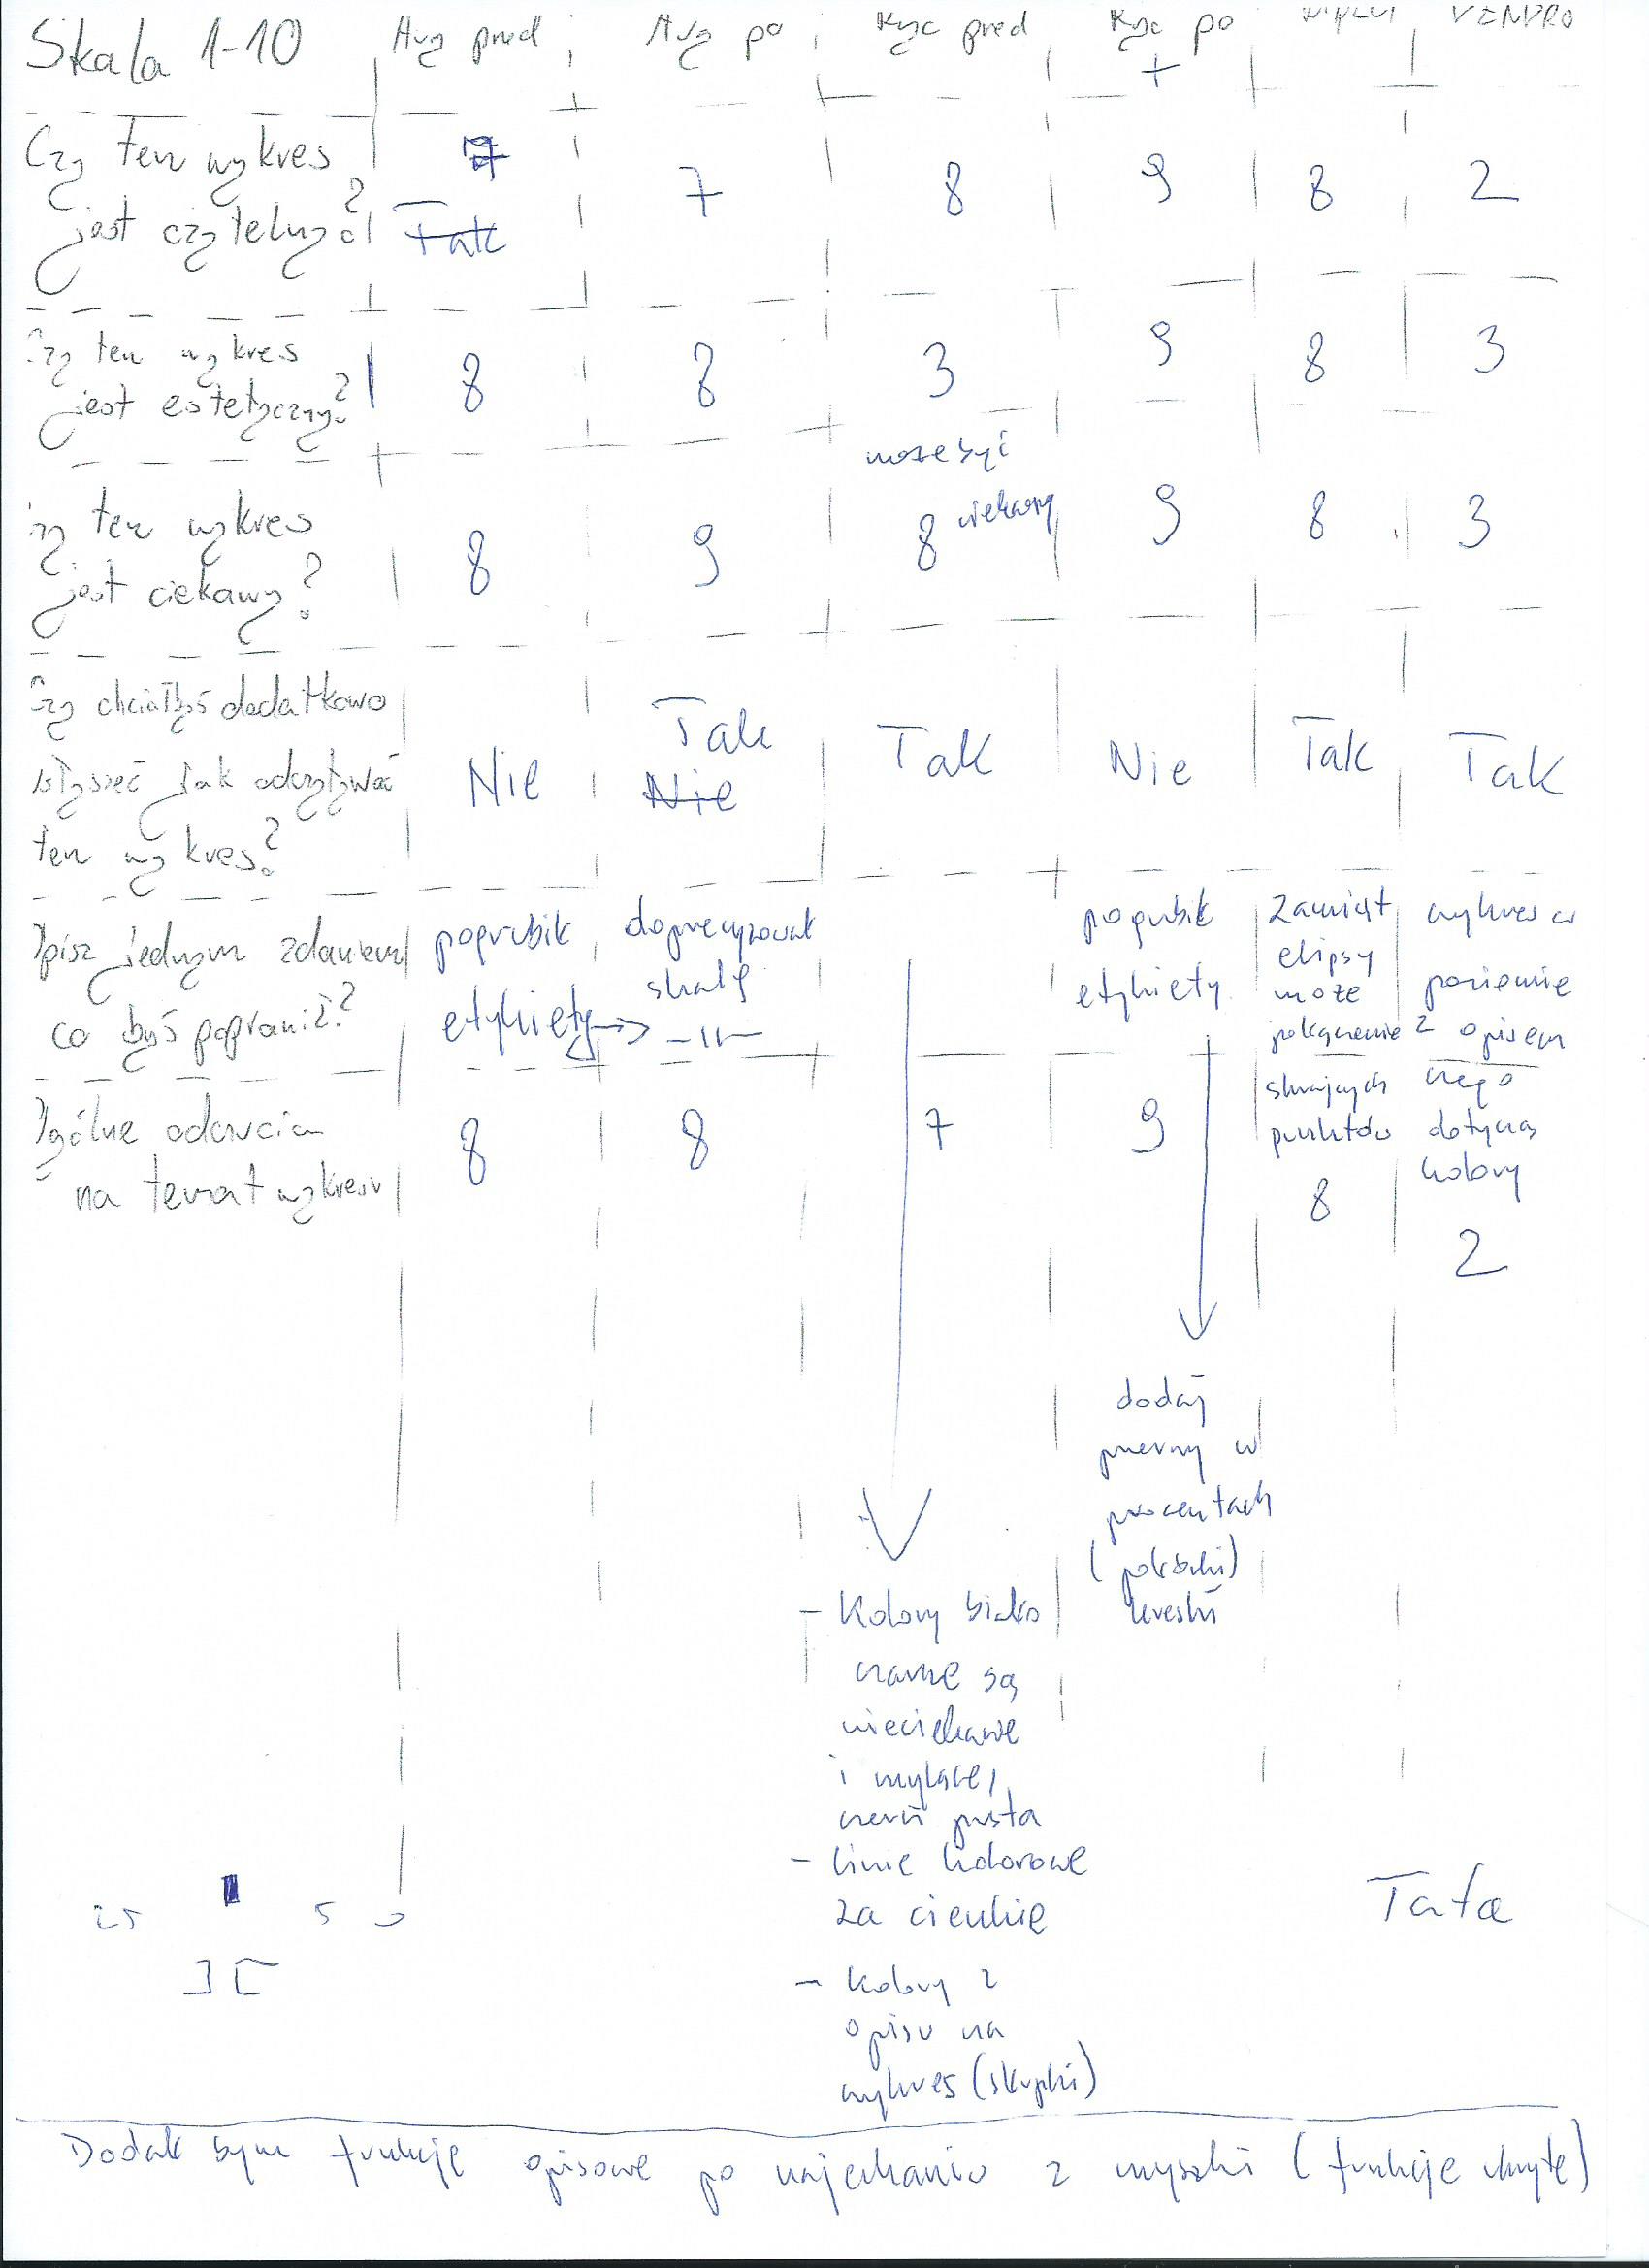 Skala 1-10
Avg pred
Avg po
Kyc pred
Kyc po
+
VENPRO
Czy ten wykres
jest czytelny?
7
Tak
7
8
9
8
2
Czy ten wykres
jest estetyczny?
8
8
3
9
8
3
Czy ten wykres
jest ciekawy?
8
9
może być
8 ciekawy
9
8
3
Czy chciałbyś dodatkowo
słyszeć jak odczytywać
ten wykres?
Nie
Tak
Nie
Tak
Nie
Tak
Tak
Opisz jednym zdaniem
co byś poprawił?
pogrubić
etykiety
doprecyzować
skalę
-||-
pogrubić
etykiety
zamiast
elipsy
może
połączenie
skrajnych
punktów
wykres w
poziomie
z opisem
czego
dotyczą
kolory
Ogólne odczucia
na temat wykresu
8
8
7
9
8
2
dodaj
przerwy w
procentach
(pokroki)
kreski
- Kolory biało
czarne są
nieciekawe
i mylące,
czerń pusta
- linie kolorowe
za cienkie
- kolory z
opisu na
wykres (skupki)
25
5
Tata
Dodał bym funkcję opisowe po najechaniu z myszki (funkcje ukryte)